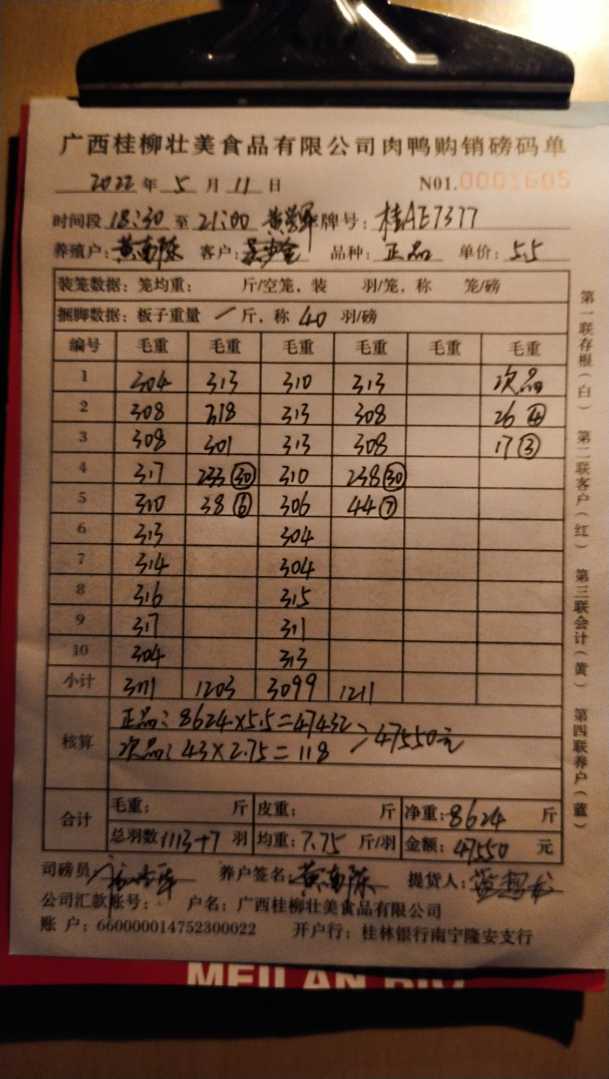 广西桂柳壮美食品有限公司肉鸭购销磅码单
2022 年 5 月 11 日 N01.0001605
时间段 18:30 至 21:00 牌号: 桂AE7377
养殖户: 黄 客户: 品种: 正品 单价: 5.5
装笼数据: 笼均重: 斤/空笼, 装 羽/笼, 称 笼/磅
捆脚数据: 板子重量 / 斤, 称 40 羽/磅
编号 毛重 毛重 毛重 毛重 毛重 毛重
1 304 313 310 313 次品
2 308 318 313 308 26④
3 308 301 313 308 17③
4 317 233㉚ 310 238㉚
5 310 38⑥ 306 44⑦
6 313 304
7 314 304
8 316 315
9 317 311
10 304 313
小计 3111 1203 3099 1211
核算
正品: 8624×5.5=47432
次品: 43×2.75=118 >47550元
合计 毛重: 斤 皮重: 斤 净重: 8624 斤
总羽数 1113+7 羽 均重: 7.75 斤/羽 金额: 47550 元
司磅员 养户签名: 黄 提货人:
公司汇款帐号: 户名: 广西桂柳壮美食品有限公司
账 户: 660000014752300022 开户行: 桂林银行南宁隆安支行
第一联存根(白) 第二联客户(红) 第三联会计(黄) 第四联养户(蓝)